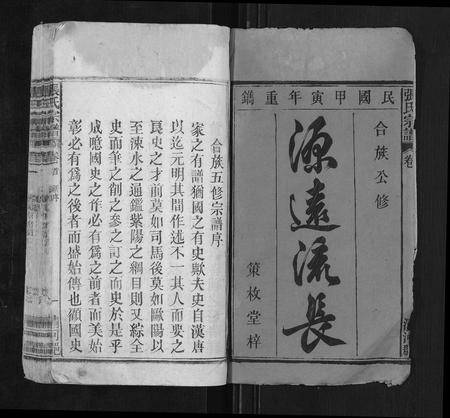 民國甲寅年重鐫
合族公修
源遠流長
策枚堂梓
張氏宗譜
卷
合族五修宗譜序
家之有譜猶國之有史歟夫史自漢唐
以迄元明其間作述不一其人而要之
良史之才前莫如司馬後莫如歐陽以
至涑水之通鑑紫陽之綱目則又綜全
史而筆之削之參之訂之而史於是乎
成嘻國史之作必有為之前者而美始
彰必有為之後者而盛始傳也顧國史
張氏宗譜